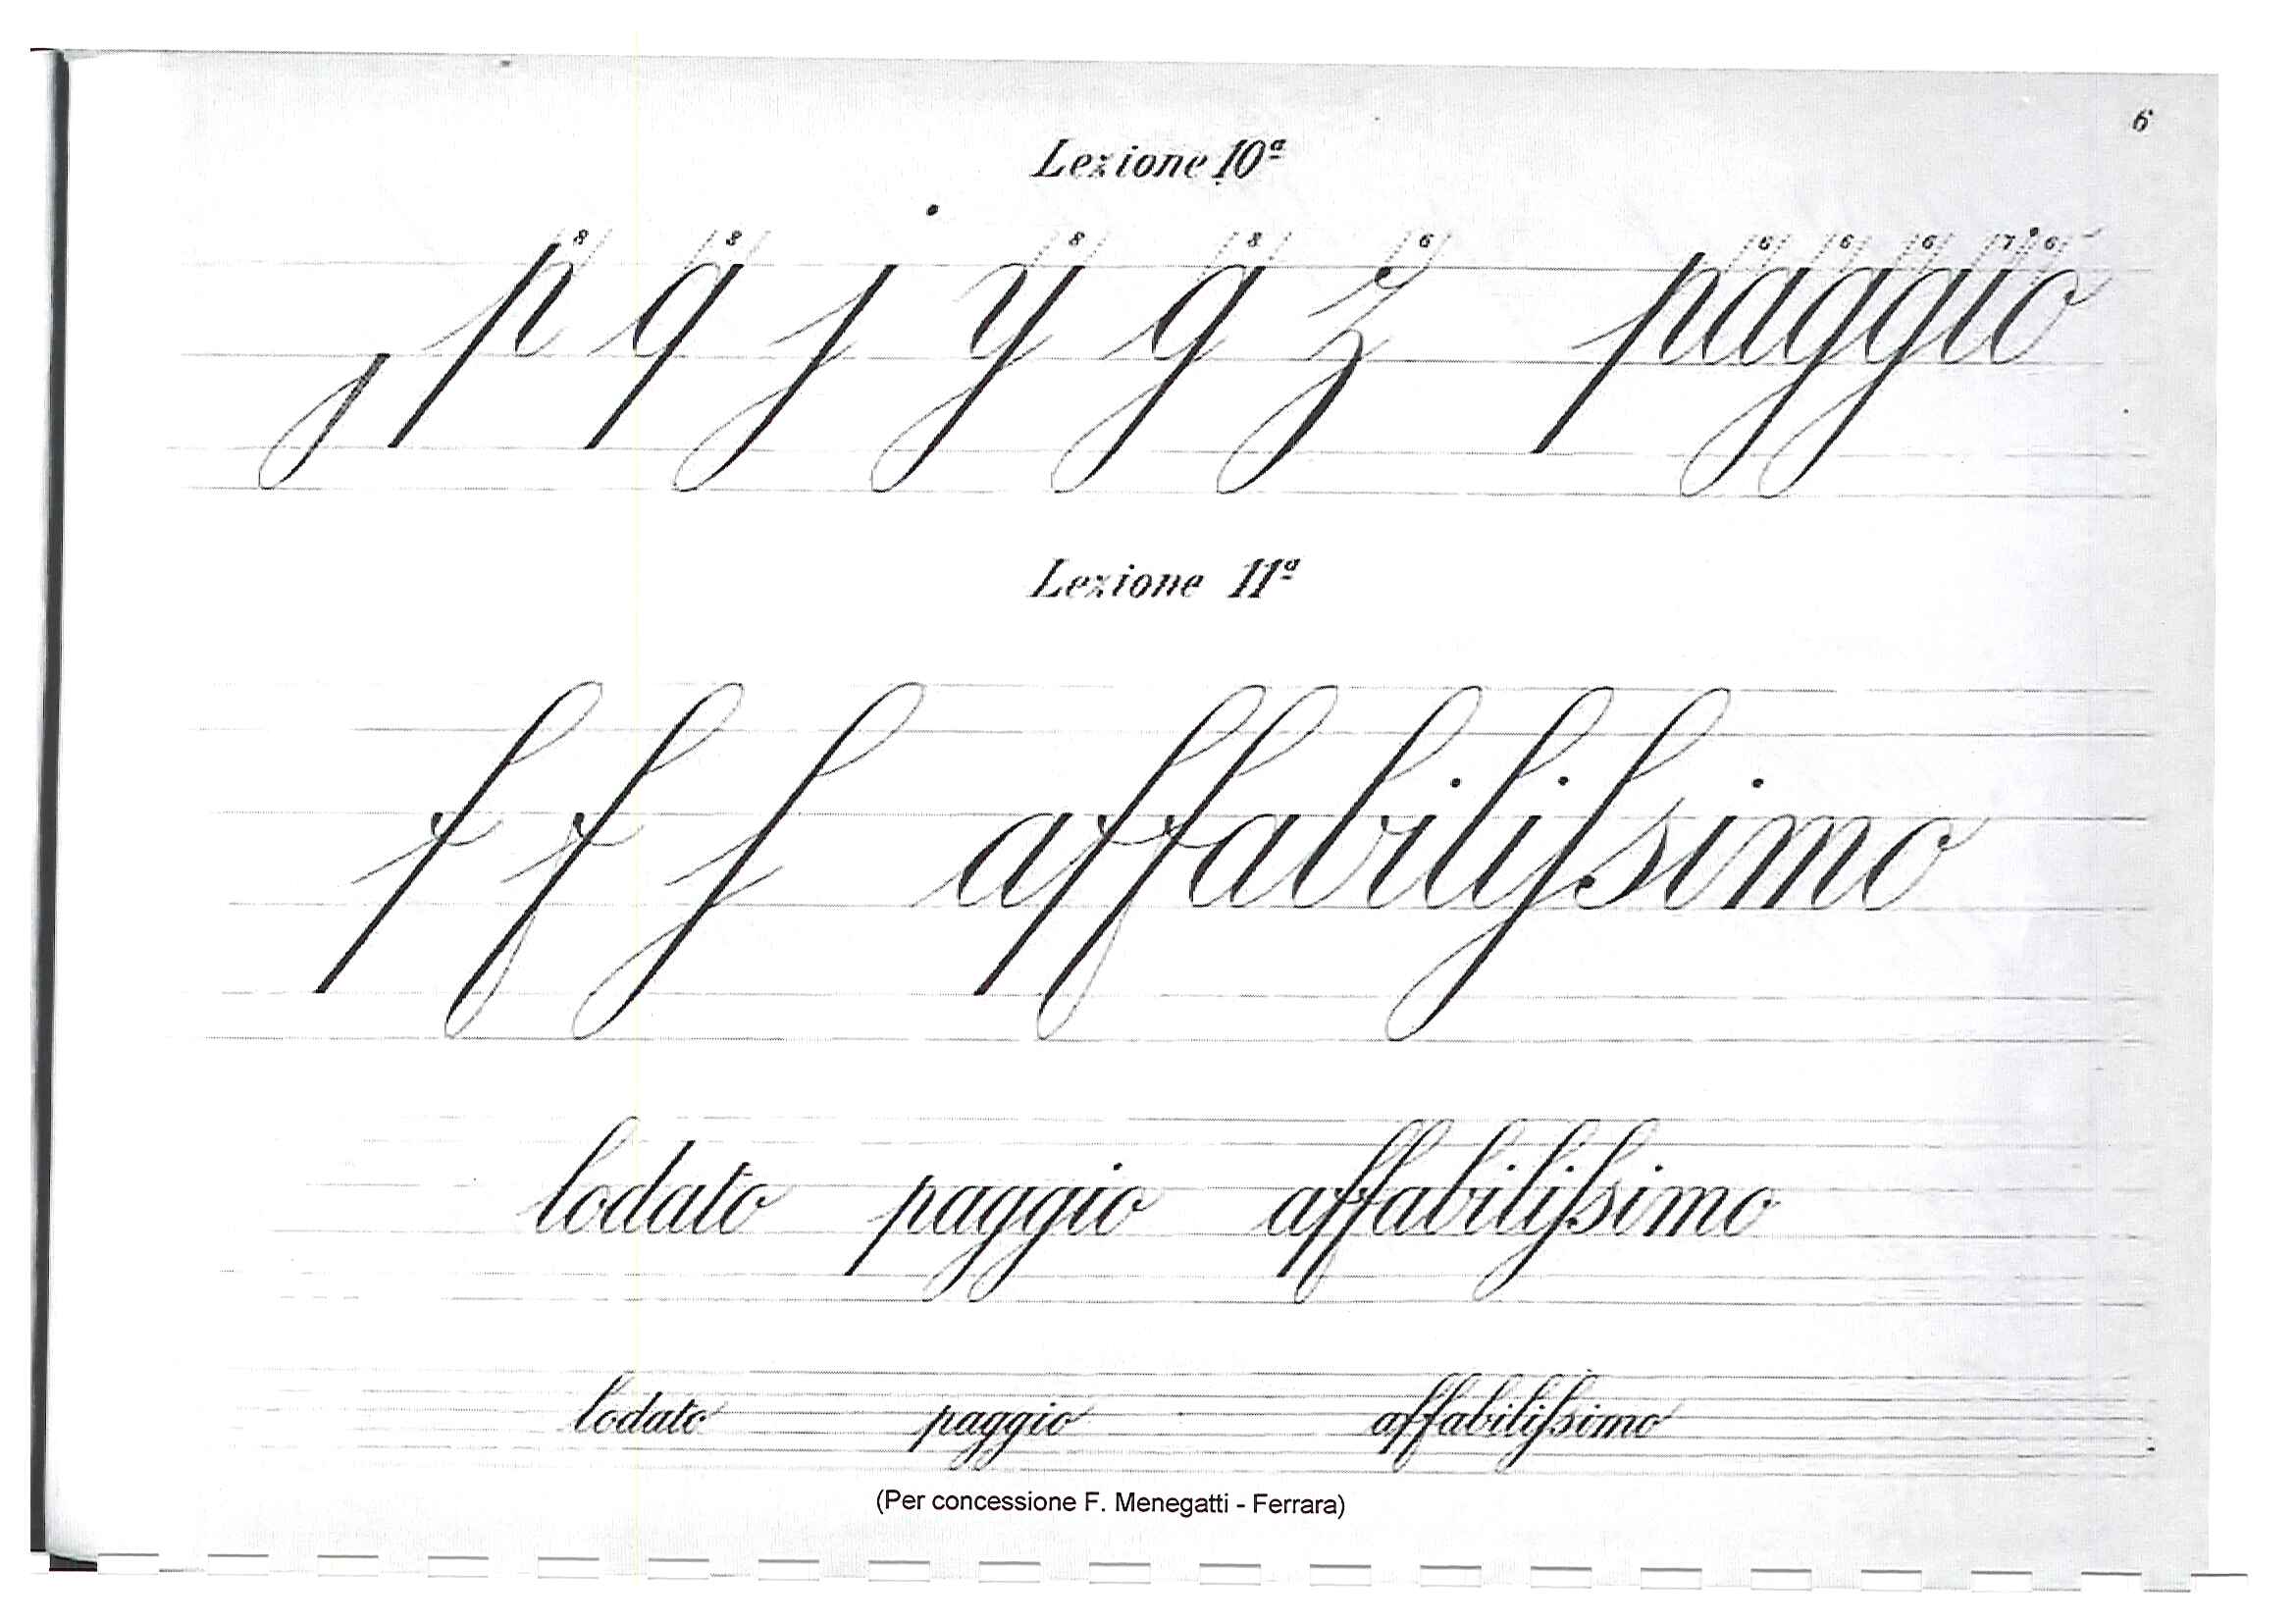 6
Lezione 10ª
8 8 8 8 6 6 6 6 7 6
j p q j y g z paggio
Lezione 11ª
f f ſ affabiliſsimo
lodato paggio affabiliſsimo
lodato paggio affabiliſsimo
(Per concessione F. Menegatti - Ferrara)